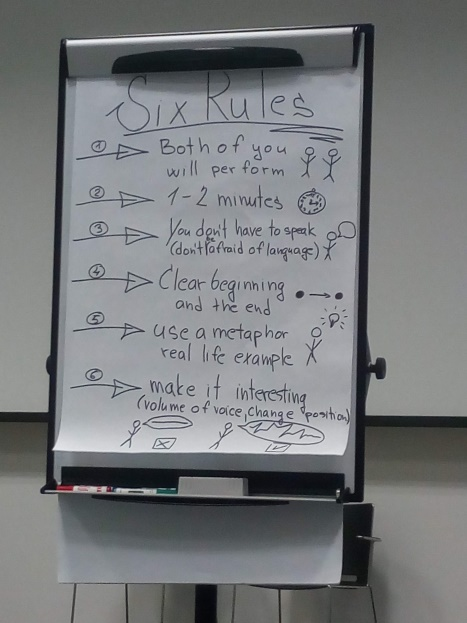 Six Rules
1 Both of you
will perform
2 1-2 minutes
3 You don't have to speak
(don't be afraid of language)
4 Clear beginning
and the end
5 use a metaphor
real life example
6 make it interesting
(volume of voice, change position)